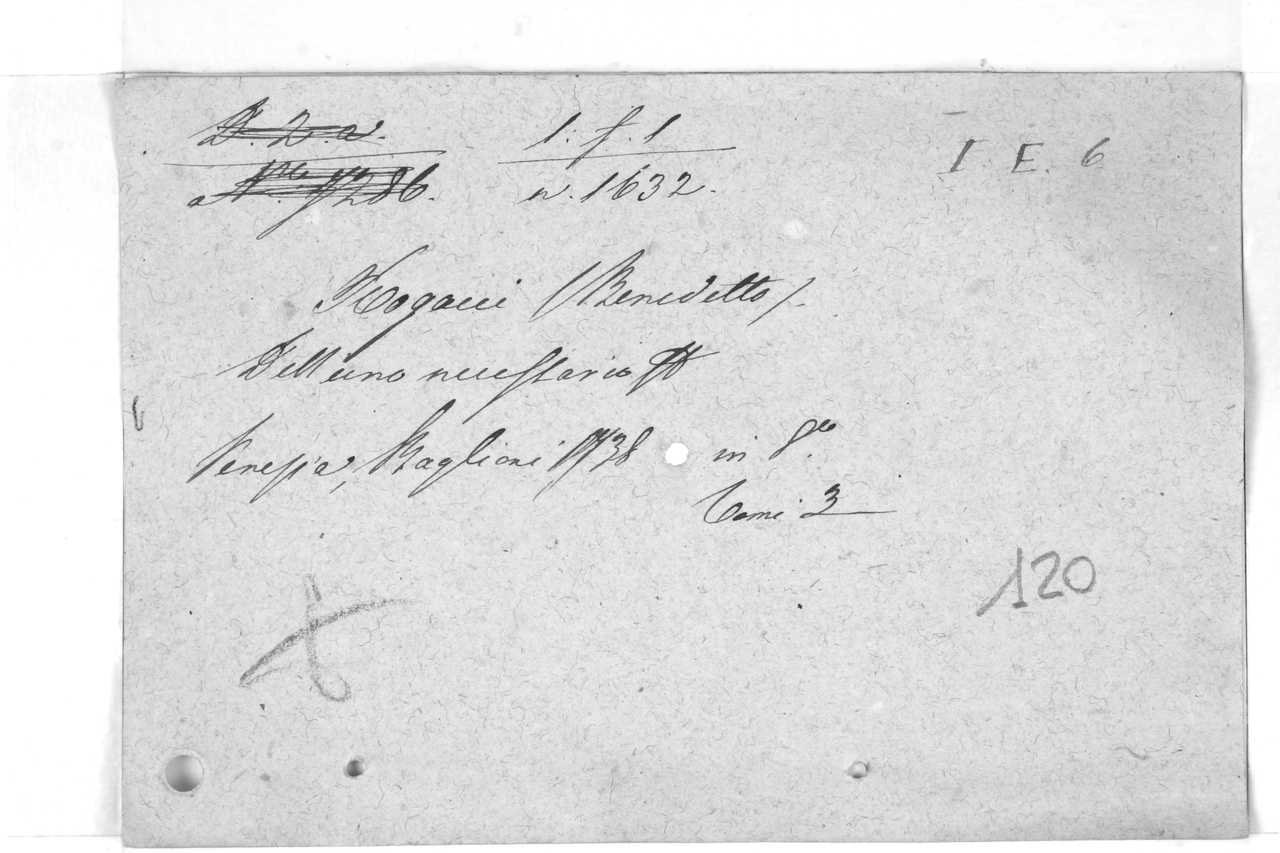 D. 2. a. 1. f. 1 I. E. 6
n. 1632.
Rogacci (Benedetto).
Dell'uno necessario
Venezia, Baglioni 1738 in 8.vo
Tomi 3
120